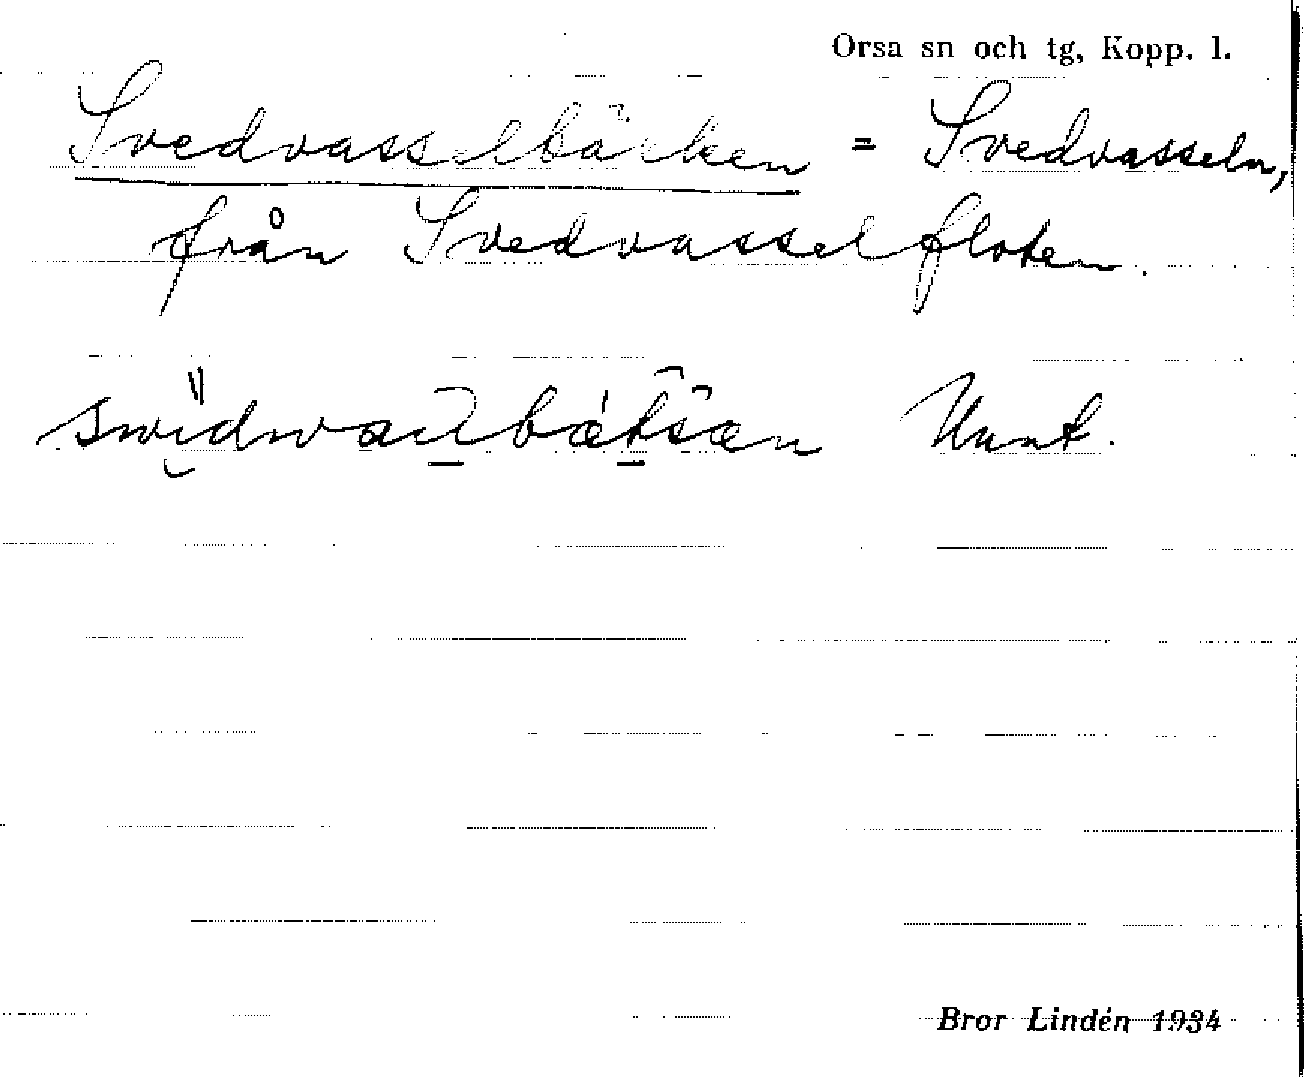 Orsa sn och tg, Kopp. l.
Svedvasselbäcken = Svedvasseln,
från Svedvasselfloten.
Hunt.
Bror Lindén 1934